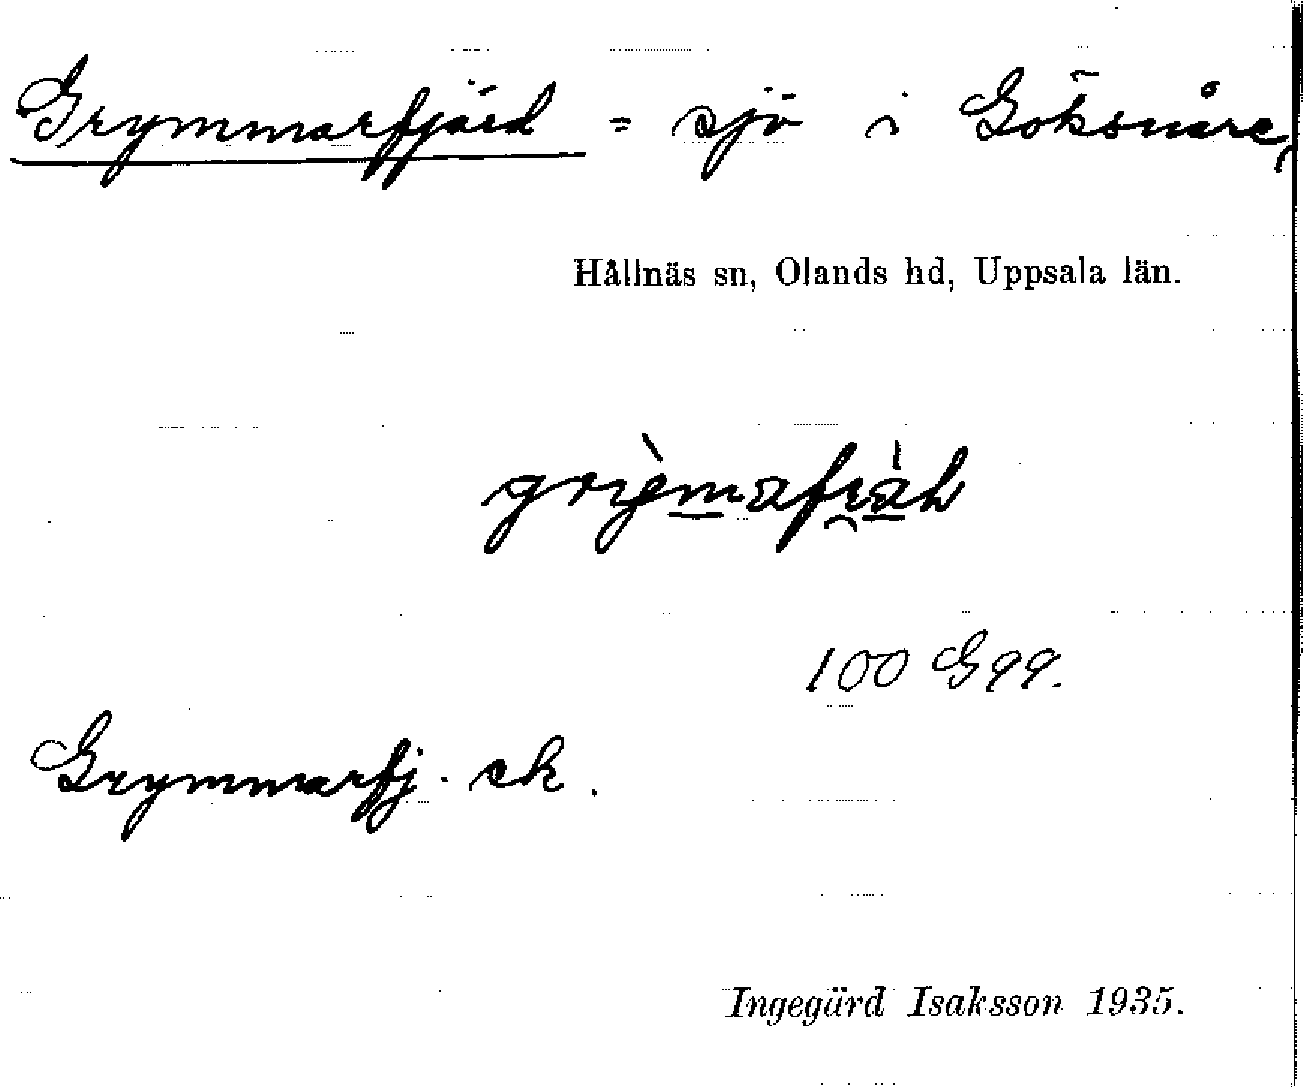 Grymmarfjärd = sjö i Göksnåre,
Hållnäs sn, Olands hd, Uppsala län.
100 G99.
Grymmarfj. ek.
Ingegärd Isaksson 1935.